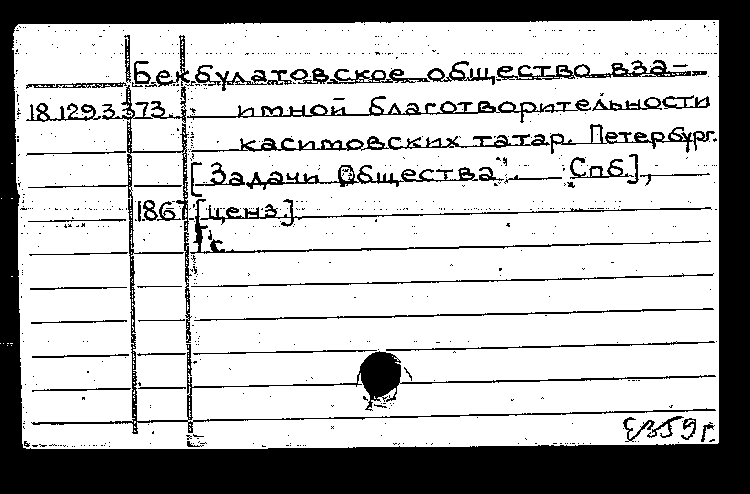 Бекбулатовское общество вза-
18.129.3.373. имной благотворительности
касимовских татар. Петербург.
[Задачи Общества. Спб.],
1867 [ценз].
1 с.